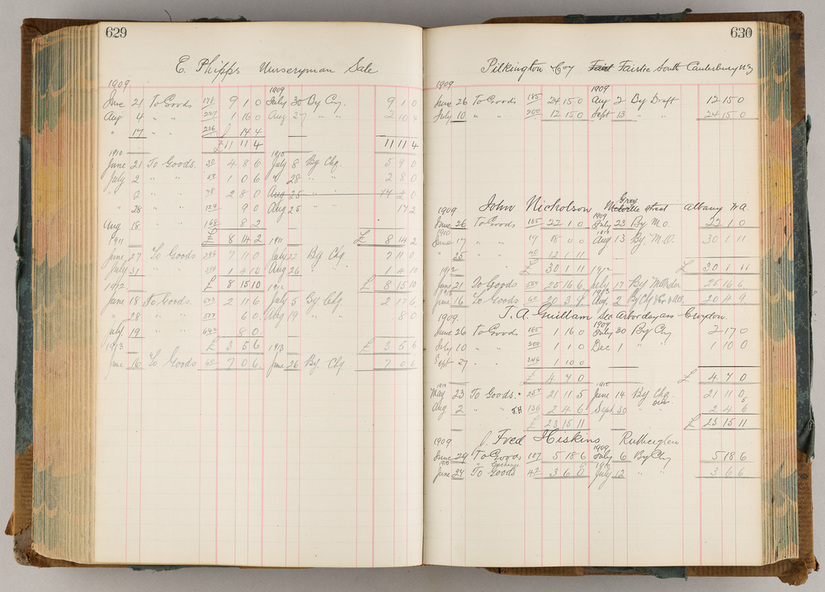 629
E. Phipps Nurseryman Sale
1909 1909
June 21 To Goods 9 1 0 July 30 By Chq. 9 1 0
Aug 4 " " 1 16 0 Aug 27 " " 2 10 4
" 17 " " 14 4
£11 11 4 11 11 4
1910 1910
June 21 To Goods. 4 8 6 July 8 By Chq 5 9 0
July 2 " " 1 0 6 " 28 " " 2 8 0
" 2 " " 2 8 0 Aug 25
" 28 " " 9 0 Aug 25 17 2
Aug 18 8 2
1911 £ 8 14 2 1911 £ 8 14 2
June 27 To Goods 7 11 0 July 22 By Chq 7 11 0
July 31 " " 1 4 10 Aug 26 " 1 4 10
1912 £ 8 15 10 1912 £ 8 15 10
June 18 To Goods. 2 11 6 July 5 By Chq 2 11 6
" 28 " " 6 0 Aug 19 " 8 0
July 19 " " 8 0
1913 £ 3 5 6 1913 £ 3 5 6
June 16 To Goods 7 0 6 June 26 By Chq 7 0 6
630
Pilkington & Coy Fairlie South Canterbury N Z
1909 1909
June 26 To Goods 185 24 15 0 Aug 2 By Draft 12 15 0
July 10 " " 12 15 0 Sept 13 " " 24 15 0
1909 John Nicholson Grey street Albany W A
1909
June 26 To Goods 185 22 1 0 July 23 By M.O. 22 1 0
1910 1910
June 17 " " 18 0 0 Aug 13 By M.O. 30 1 11
" 25 " " 12 1 11
1912 £ 30 1 11 1912 £ 30 1 11
June 21 To Goods 25 16 6 July 17 By 25 16 6
1913
June 16 To Goods 20 3 9 Aug 2 By Chq
1909 T. A. Guillam Croydon
1909
June 26 To Goods 185 1 16 0 July 30 By Chq 2 17 0
July 10 " " 1 1 0 Dec 1 " " 1 10 0
Sept 27 " " 1 10 0
£ 4 7 0 £ 4 7 0
May 23 To Goods. 21 11 5 June 14 By Chq 21 11 0
Aug 2 " " 2 4 6 Sept 30 " 2 4 6
£ 23 15 11 £ 23 15 11
1909 Fred Hiskins Rutherglen
1909
June 29 To Goods 187 5 18 6 July 6 By Chq 5 18 6
June 24 To Goods 42 3 6 0 July 12 " " 3 6 6